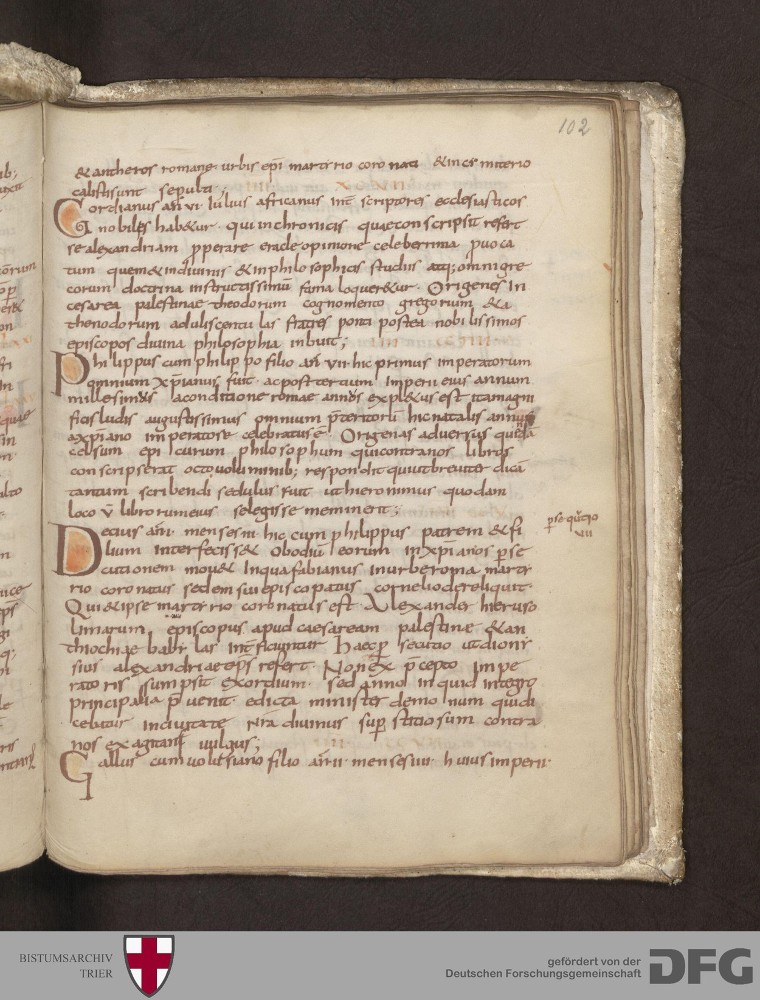 102
& antheros romane urbis epi martirio coronati & in cimiterio
calisti sunt sepulti;
Gordianus an vi Iulius africanus int scriptores ecclesiasticos
nobiles hab&ur qui in chronicis quae conscripsit refert
se alexandriam properare eracle opinione celeberrima provoca
tum quem & in divinis & in philosophicis studiis atq; omni gre
corum doctrina instructissimū fama loquer&ur Origenes In
cesarea palestinae theodorum cognomento gregorium & a
thenodorum adulescentulas fratres ponti postea nobilissimos
episcopos divina philosophia inbuit;
Philippus cum philippo filio añ vii hic primus imperatorum
omnium xpianus fuit ac post tertium Imperii eius annum
millesimus a conditione romae annus expl&us est ita magni
ficis ludis augustissimus omnium preteritorū hic natalis annus
a xpiano imperatore celebratus ē Origenas adversus quēdā
celsum epicurum philosophum qui contra nos libros
conscripserat octo voluminib; respondit qui ut breviter dicā
tantum scribendi sedulus fuit ut hieronimus quodam
loco v libro rum eius se legisse meminerit;
Decius añ i menses iii hic cum philippus patrem & fi
lium interfeciss& ob odiū eorum in xpianos perse
cutionem mov& In qua fabianus in urbe roma marti
rio coronatus sedem sui episcopatus cornelio dereliquit
Qui & ipse martirio coronatus est Alexander hieruso
limarum episcopus apud caesaream palestine & an
thiochiae babilas int ficiuntur Haec persecutio ut dioni
sius alexandriae eps refert Non ex pcepto Impe
ratoris sumpsit exordium sed anno inquid integro
principalia p venit edicta minister demonum qui di
cebatur In civitate nrā divinus superstitiosum contra
nos exagitans vulgus;
Gallus cum volusiano filio añ ii menses iiii huius imperii
persequtio
vii
BISTUMSARCHIV
TRIER
gefördert von der
Deutschen Forschungsgemeinschaft
DFG